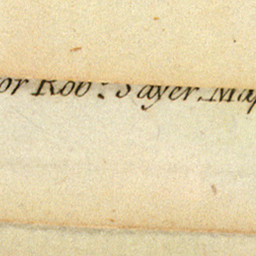 or Rob: Sayer. Map